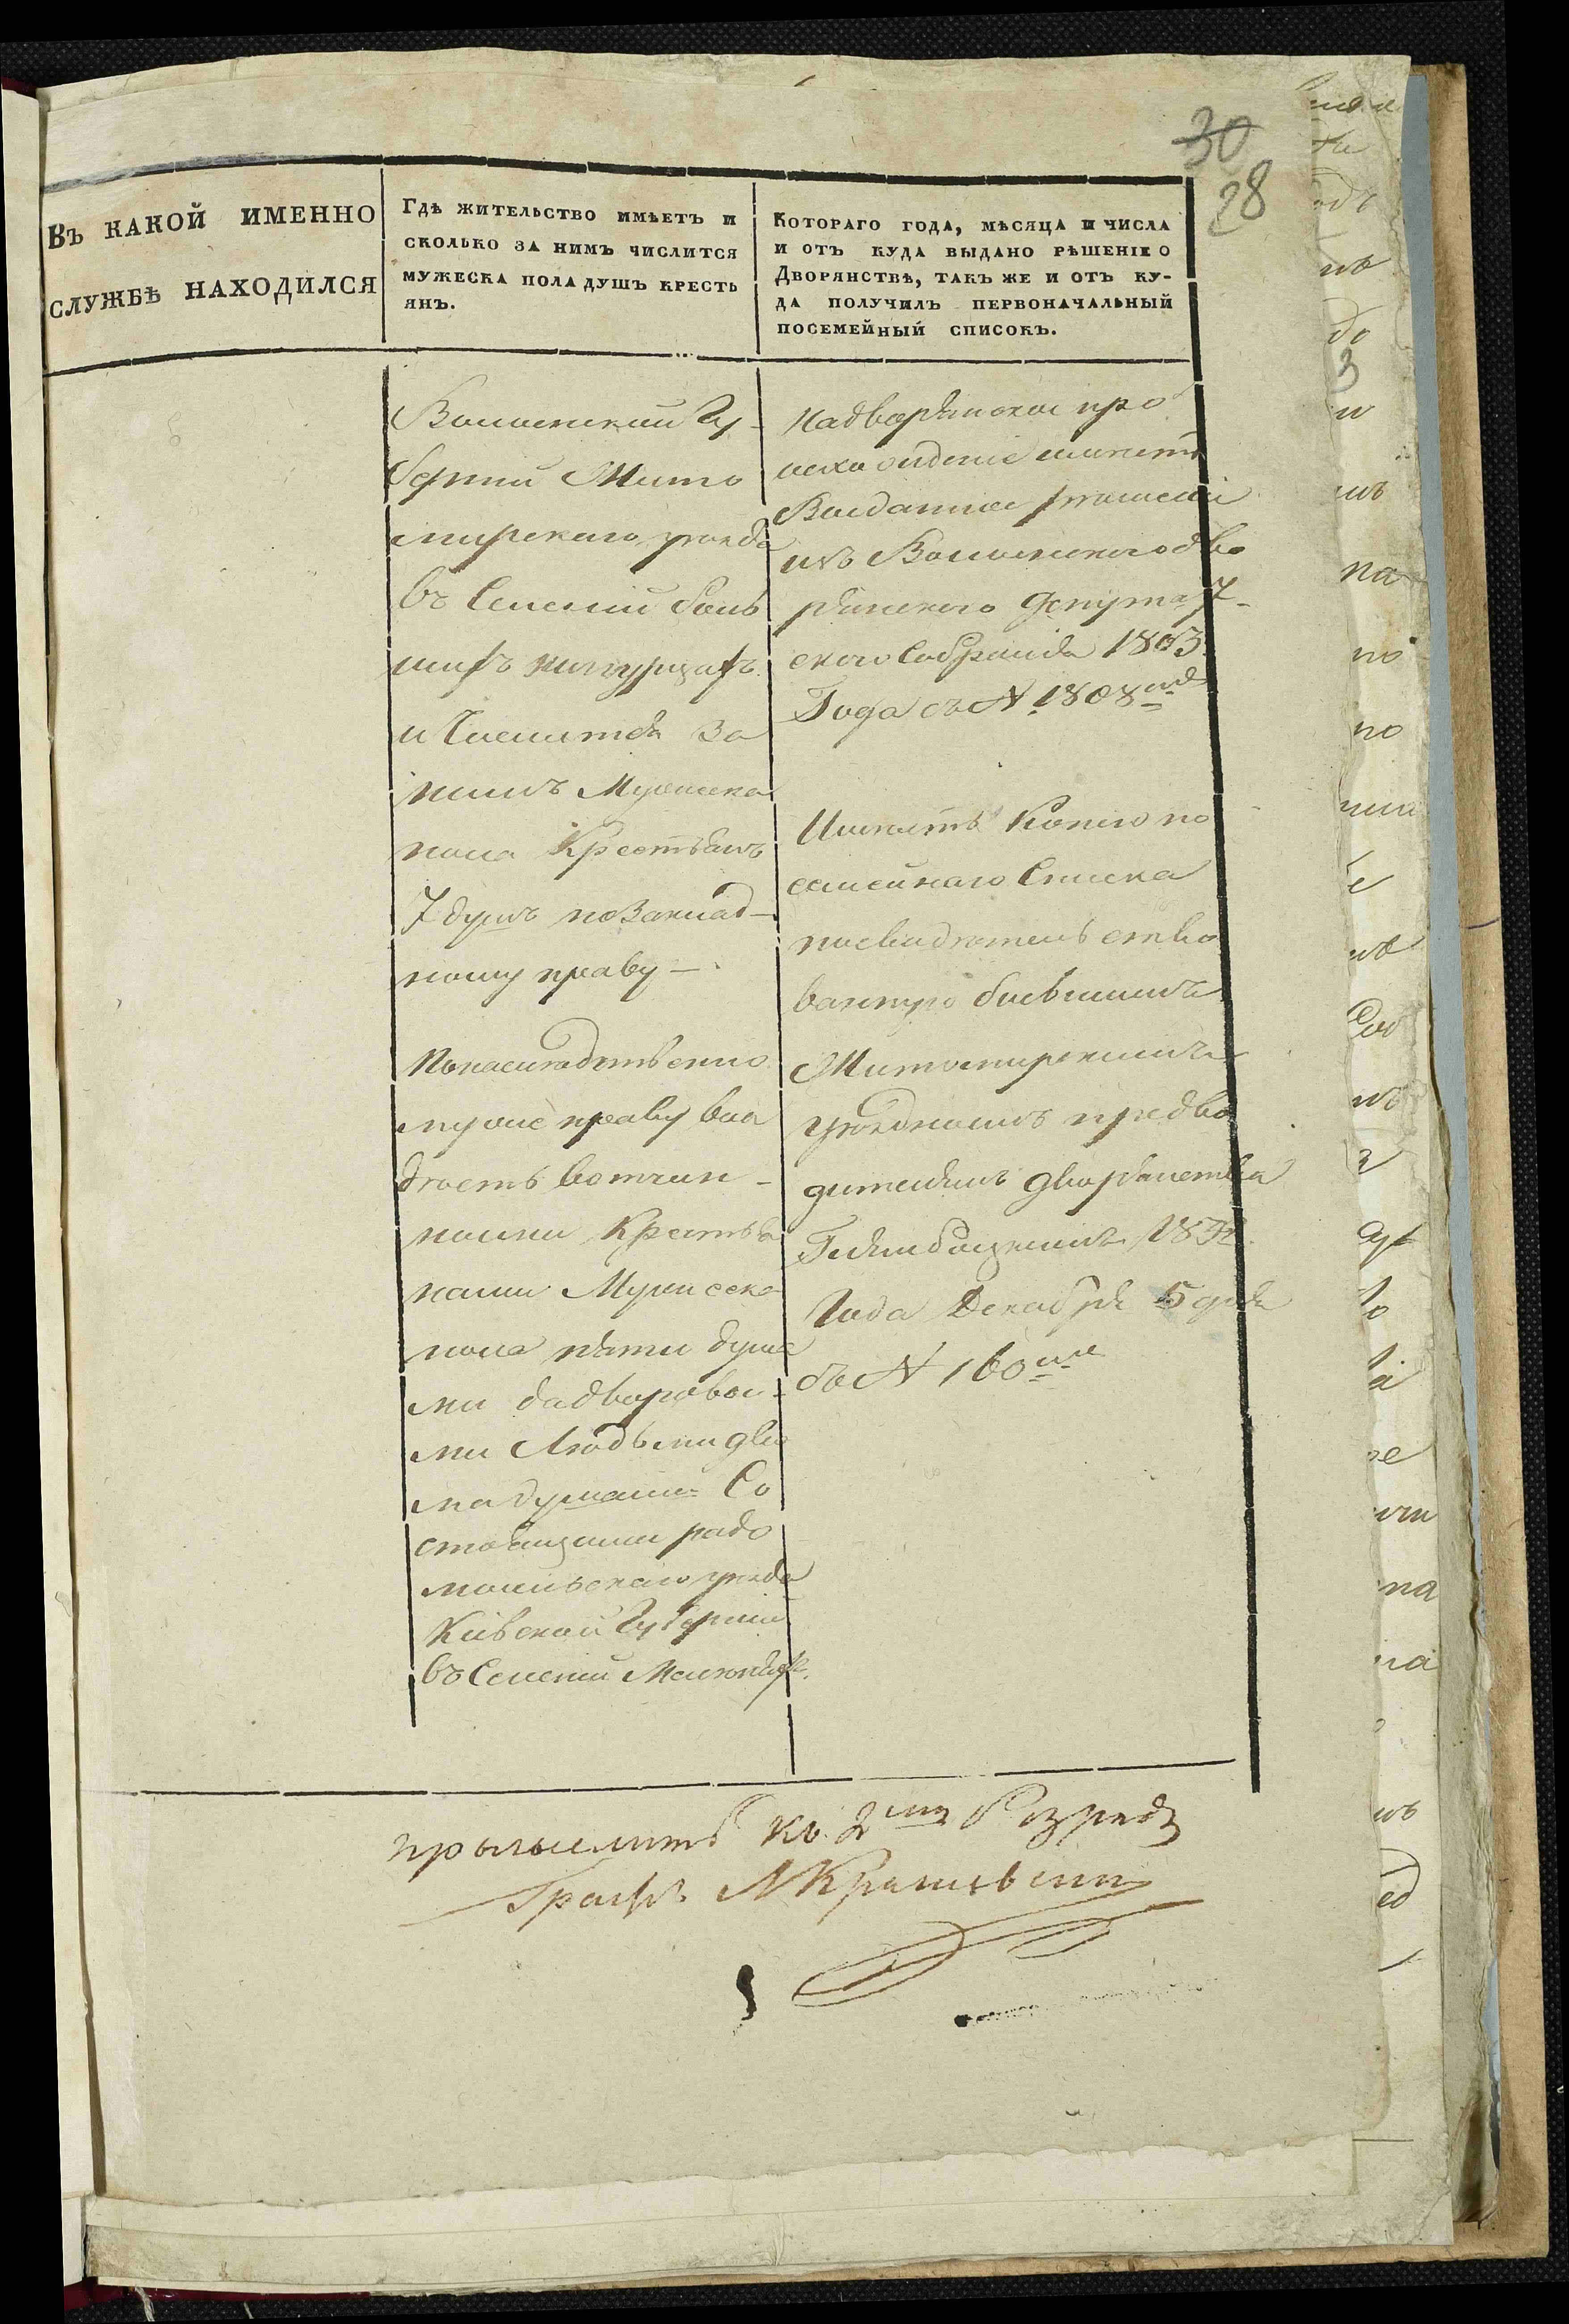 30
28
Въ какой именно
службѣ находился
Гдѣ жительство имѣетъ и
сколько за нимъ числится
мужеска пола душъ кресть
янъ.
Котораго года, мѣсяца и числа
и отъ куда выдано рѣшеніе о
Дворянствѣ, такъ же и отъ ку-
да получилъ первоначальный
посемейный списокъ.
Волынской Гу-
берніи Жито
мирскаго уѣзда
въ Селеніи боль
шихъ
и Числится За
нимъ Мужеска
пола Крестьянъ
7 душъ по Заклад-
ному праву —
По наслѣдственно
му же праву вла
дѣетъ вотчин-
ными Крестья
нами Мужеска
пола пяти душа
ми да дворовы-
ми Людьми дву
ма душами Со
стоящими радо
мысльскаго уѣзда
Кіевской Губерніи
въ Селеніи
На дворянское про
исхожденіе имѣетъ
Выданное рѣшеніе
изъ Волынского дво
рянского Депутат-
ского Собранія 1803.
Года съ № 1808мъ
Имѣетъ Копію по
семейнаго Списка
посвидѣтельство
ванную бывшимъ
Житомирскимъ
уѣзднымъ предво
дителемъ дворянства
18
Года Декабря 5 дня
съ № 160мъ
причислить къ 2му Розряду
Графъ